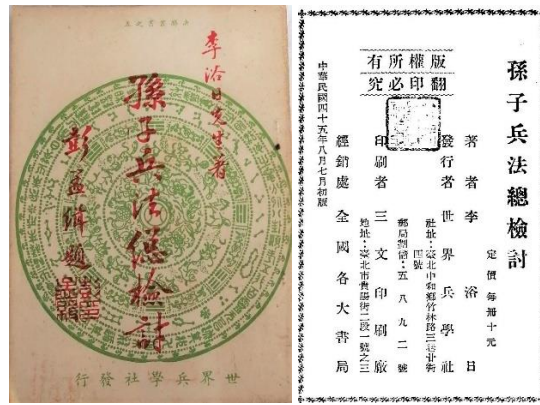 李浴日先生著
孫子兵法總檢討
彭孟緝題
世界兵學社發行
孫子兵法總檢討
定價每冊十元
著者 李浴日
發行者 世界兵學社
社址：臺北中和鄉竹林路三巷廿街
四號
郵局劃儲：五八九二號
印刷者 三文印刷廠
地址：臺北市貴陽街二段一號之三
經銷處 全國各大書局
版權所有
翻印必究
中華民國四十五年八月七月初版